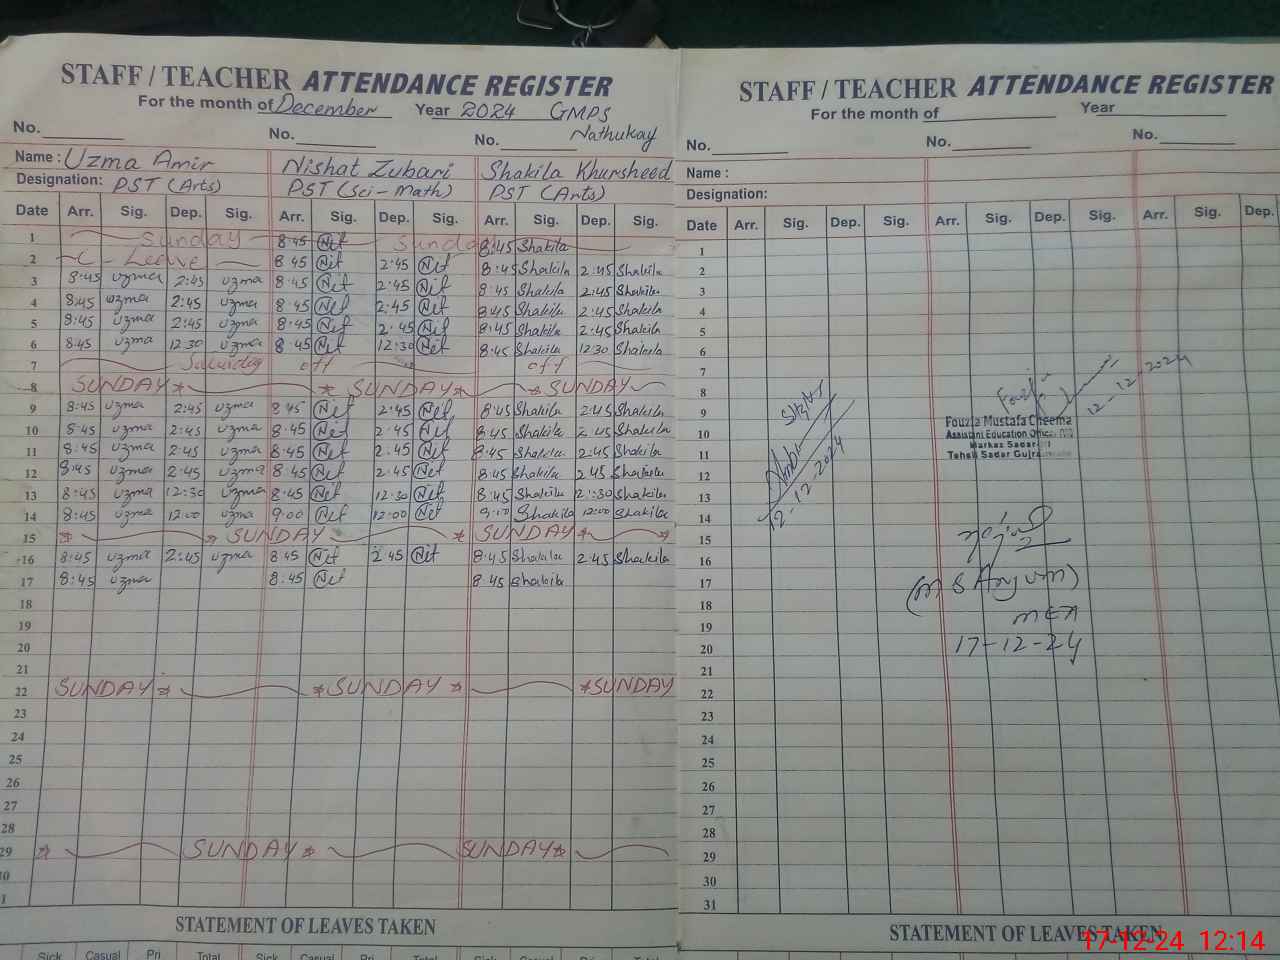 STAFF / TEACHER ATTENDANCE REGISTER
For the month of December Year 2024 GMPS
Nathukay
No. No. No.
Name : Uzma Amir Nishat Zubari Shakila Khursheed
Designation: PST (Arts) PST (Sci-Math) PST (Arts)
Date Arr. Sig. Dep. Sig. Arr. Sig. Dep. Sig. Arr. Sig. Dep. Sig.
1 Sunday 8:45 Sunday 8:45 Shakila
2 C-Leave 8:45 2:45 8:45 Shakila 2:45 Shakila
3 8:45 uzma 2:45 uzma 8:45 2:45 8:45 Shakila 2:45 Shakila
4 8:45 uzma 2:45 uzma 8:45 2:45 8:45 Shakila 2:45 Shakila
5 8:45 uzma 2:45 uzma 8:45 2:45 8:45 Shakila 2:45 Shakila
6 8:45 uzma 12:30 uzma 8:45 12:30 8:45 Shakila 12:30 Shakila
7 Saturday off off
8 SUNDAY SUNDAY SUNDAY
9 8:45 uzma 2:45 uzma 8:45 2:45 8:45 Shakila 2:45 Shakila
10 8:45 uzma 2:45 uzma 8:45 2:45 8:45 Shakila 2:45 Shakila
11 8:45 uzma 2:45 uzma 8:45 2:45 8:45 Shakila 2:45 Shakila
12 8:45 uzma 2:45 uzma 8:45 2:45 8:45 Shakila 2:45 Shakila
13 8:45 uzma 12:30 uzma 8:45 12:30 8:45 Shakila Shakila
14 8:45 uzma 12:00 uzma 9:00 12:00 9:00 Shakila 12:00 Shakila
15 SUNDAY SUNDAY
16 8:45 uzma 2:45 uzma 8:45 2:45 8:45 Shakila 2:45 Shakila
17 8:45 uzma 8:45 8:45 Shakila
18
19
20
21
22 SUNDAY SUNDAY SUNDAY
23
24
25
26
27
28
29 SUNDAY SUNDAY
STATEMENT OF LEAVES TAKEN
Sick Casual Pri Total Sick Casual Pri Total Sick Casual Pri Total
STAFF / TEACHER ATTENDANCE REGISTER
For the month of Year
No. No. No.
Name :
Designation:
Date Arr. Sig. Dep. Sig. Arr. Sig. Dep. Sig. Arr. Sig. Dep.
1
2
3
4
5
6
7
8 12-12-2024
9 Fouzia Mustafa Cheema
10 Assistant Education Officer
Markaz Sadar
11 Tehsil Sadar Gujra
12
13 12-12-2024
14
15
16
17 (M S Anjum)
18
19 MEA
20 17-12-24
21
22
23
24
25
26
27
28
29
30
31
STATEMENT OF LEAVES TAKEN
17-12-24 12:14